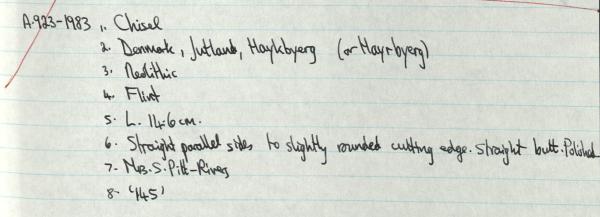 A.923-1983 1. Chisel
2. Denmark, Jutland, Haykbyerg (or Hayrbyerg)
3. Neolithic
4. Flint
5. L. 14.6cm.
6. Straight parallel sides to slightly rounded cutting edge. Straight butt. Polished
7. Mrs. S. Pitt-Rivers
8. '145'